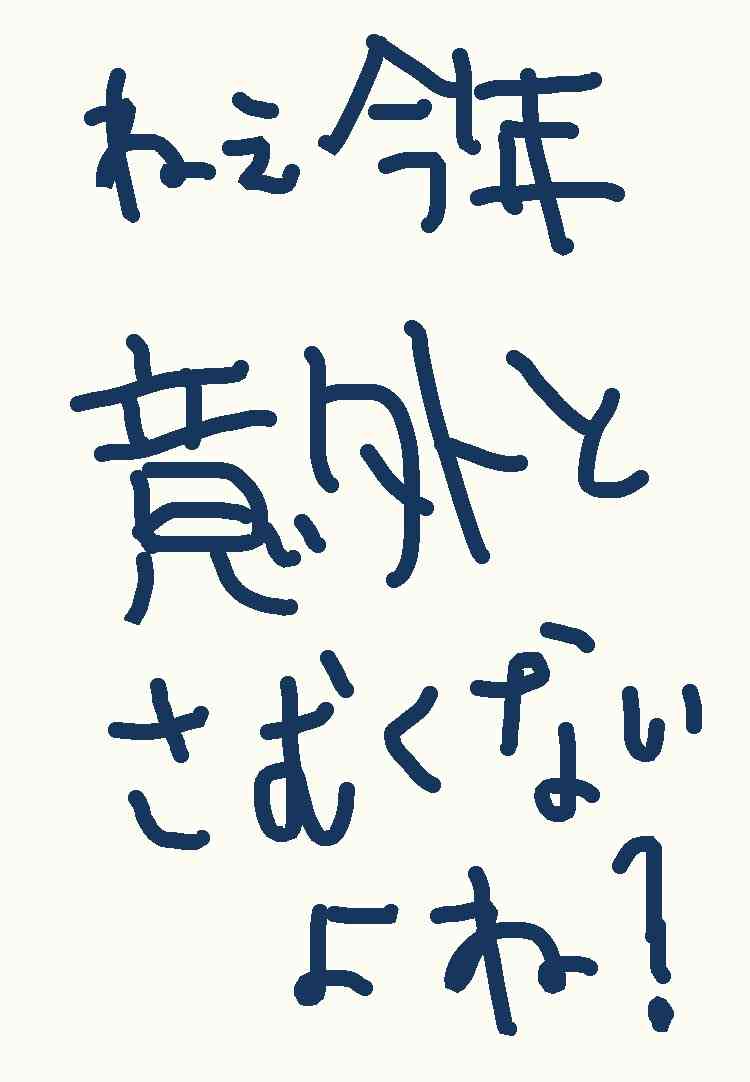 ねぇ今年
意外と
さむくない
よね?